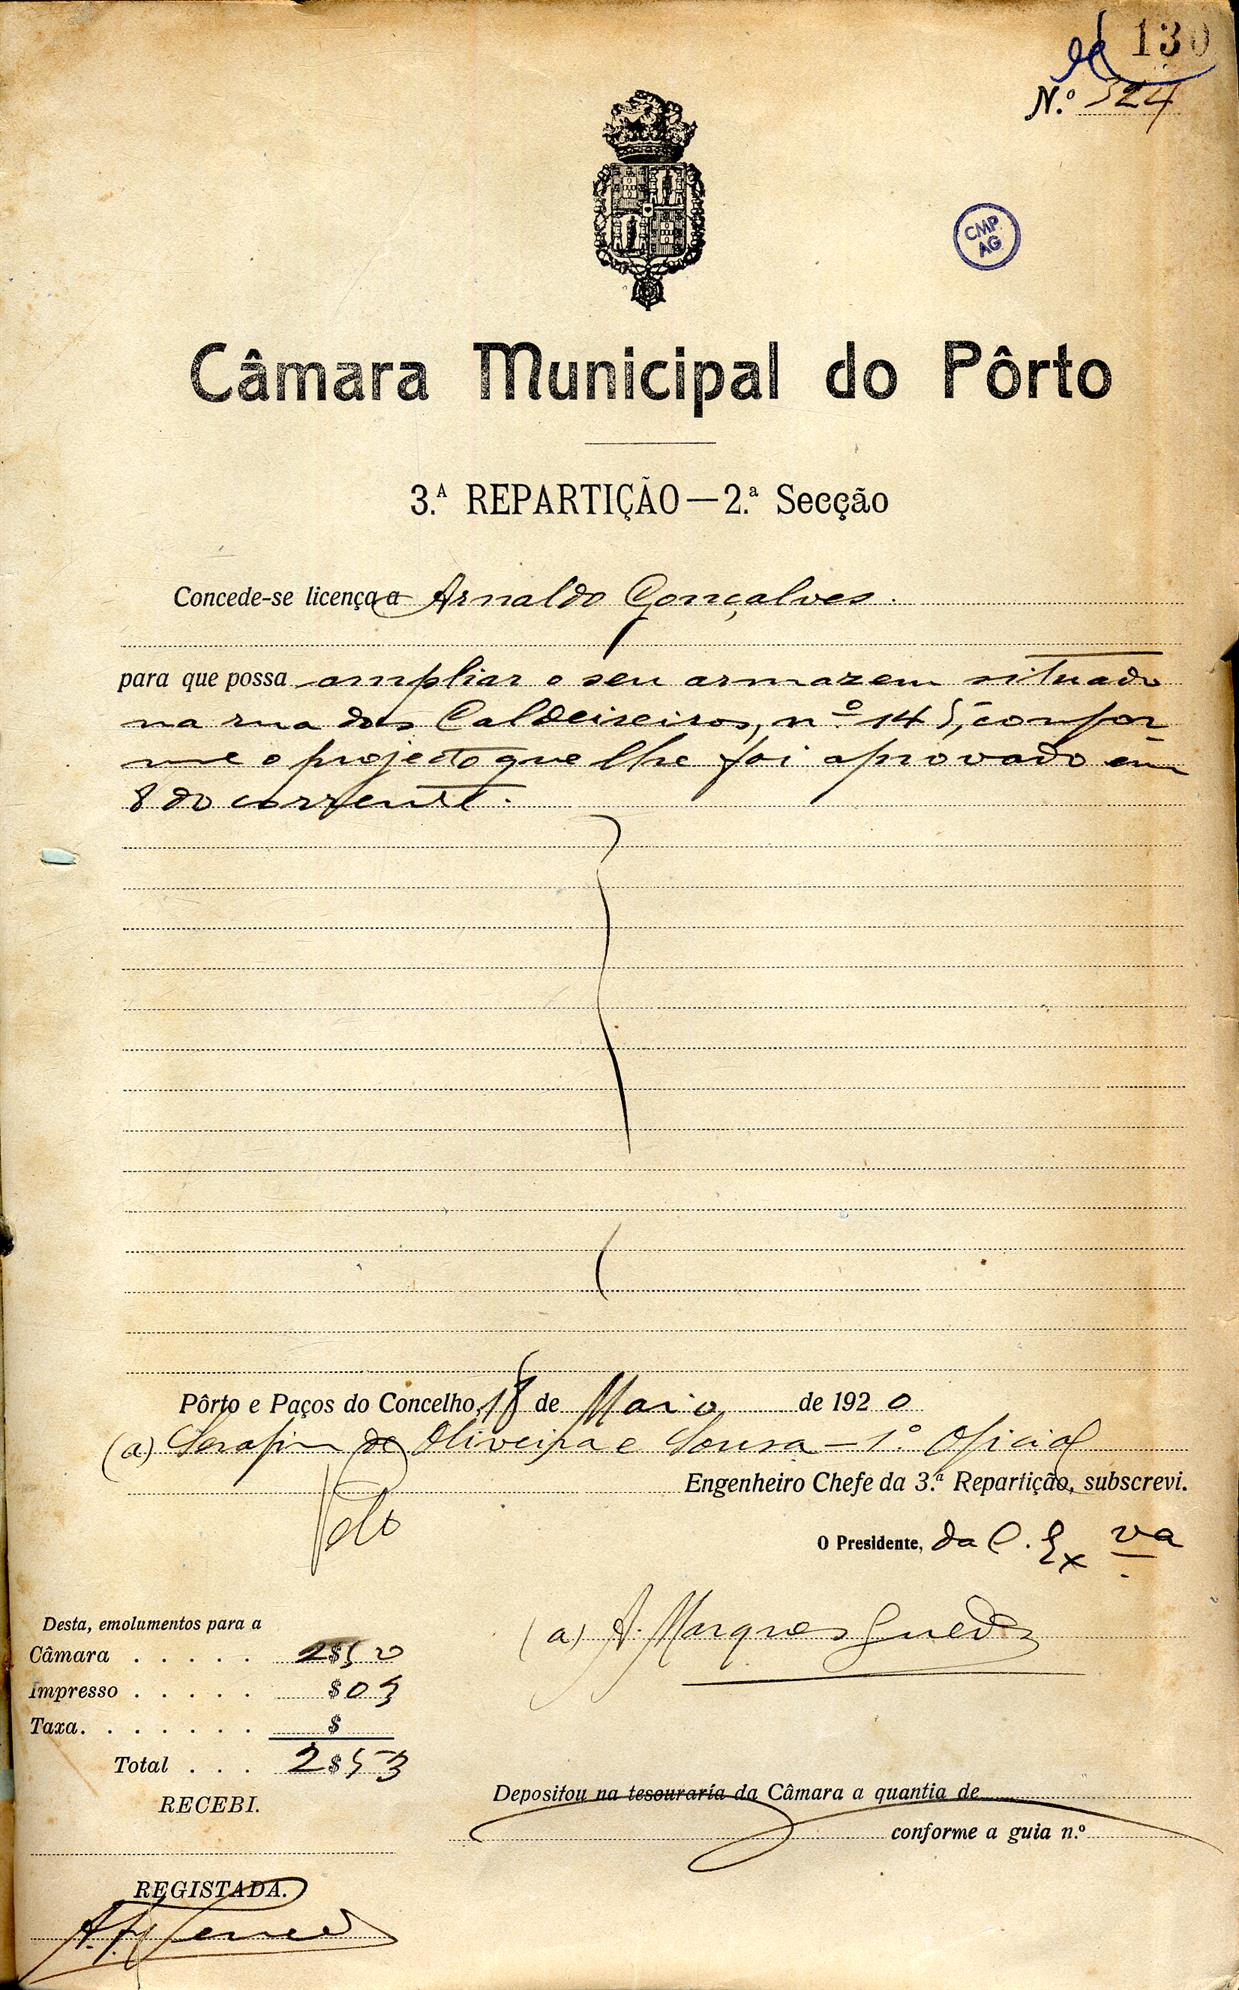 130
N.º 524
CMP
AG
Câmara Municipal do Pôrto
3.ª REPARTIÇÃO—2.ª Secção
Concede-se licença a Arnaldo Gonçalves.
para que possa ampliar o seu armazem situado
na rua dos Caldeireiros, nº 145, confor-
me o projecto que lhe foi aprovado em
8 do corrente.
Pôrto e Paços do Concelho, 18 de Maio de 1920
(a) Serafim de Oliveira e Sousa – 1º Oficial
Engenheiro Chefe da 3.ª Repartição, subscrevi.
Pelo
O Presidente, da C. Ex va
(a) A. Marques Guedes
Desta, emolumentos para a
Câmara . . . . . 2$50
Impresso . . . . . $03
Taxa. . . . . . . . $
Total . . . 2$53
RECEBI.
Depositou na tesouraria da Câmara a quantia de
conforme a guia n.º
REGISTADA.